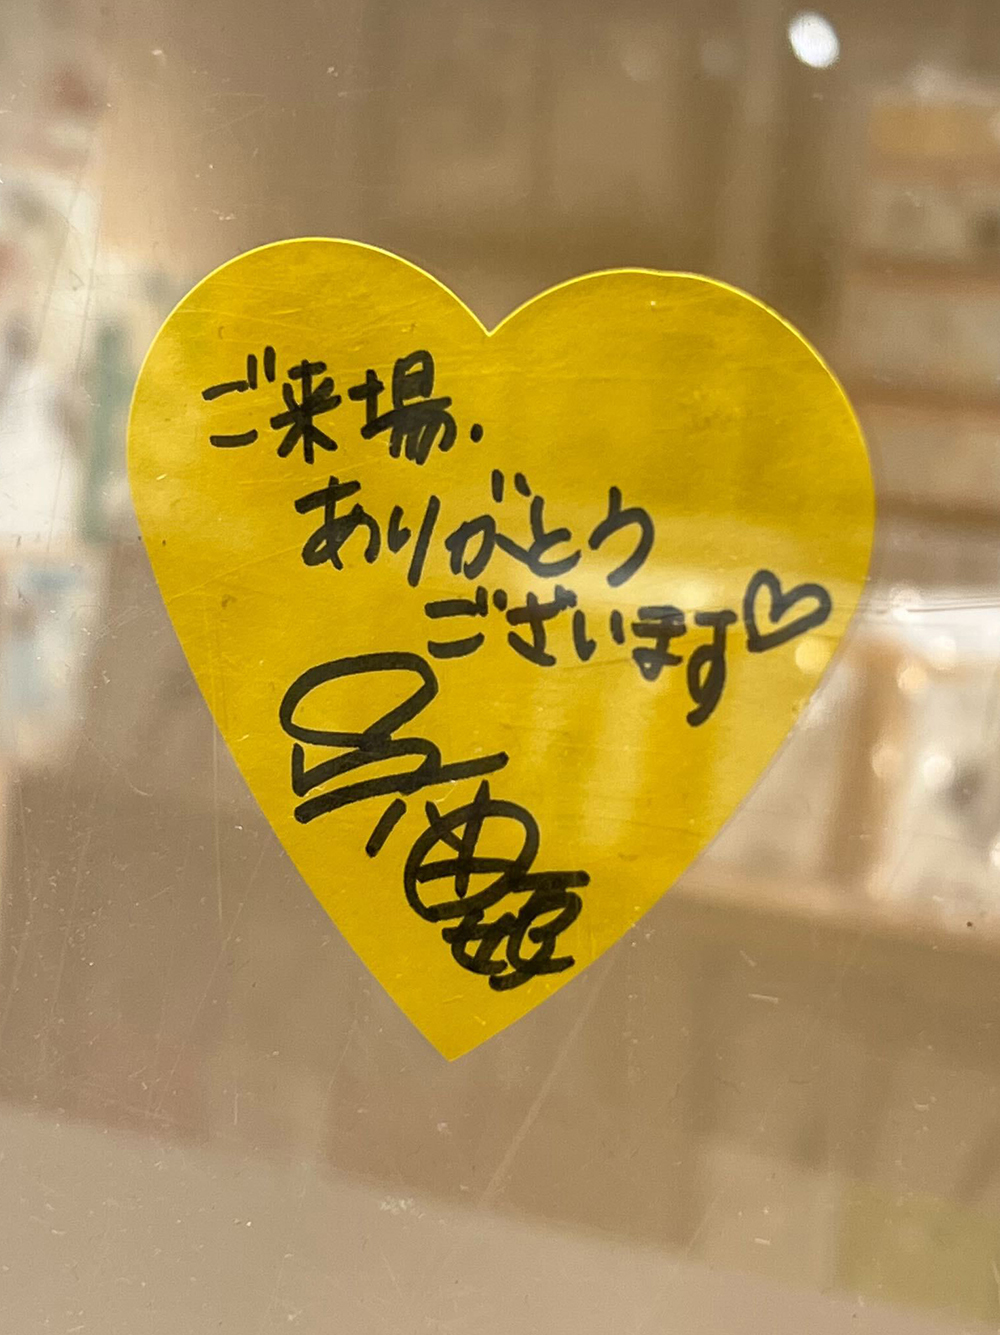 ご来場.
ありがとう
ございます♡